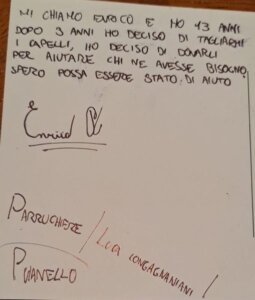 MI CHIAMO ENRICO E HO 13 ANNI
DOPO 3 ANNI HO DECISO DI TAGLIARMI
I CAPELLI, HO DECISO DI DONARLI
PER AIUTARE CHI NE AVESSE BISOGNO
SPERO POSSA ESSERE STATO DI AIUTO
Enrico
PARRUCHIERE / LUA LONGAGNANIANI /
PUIANELLO